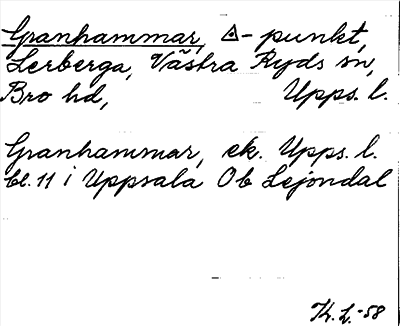 Granhammar, △-punkt,
Lerberga, Västra Ryds sn,
Bro hd, Upps. l.
Granhammar, ek. Upps. l.
bl. 11 i Uppsala Ob Lejondal
Th. L. -58